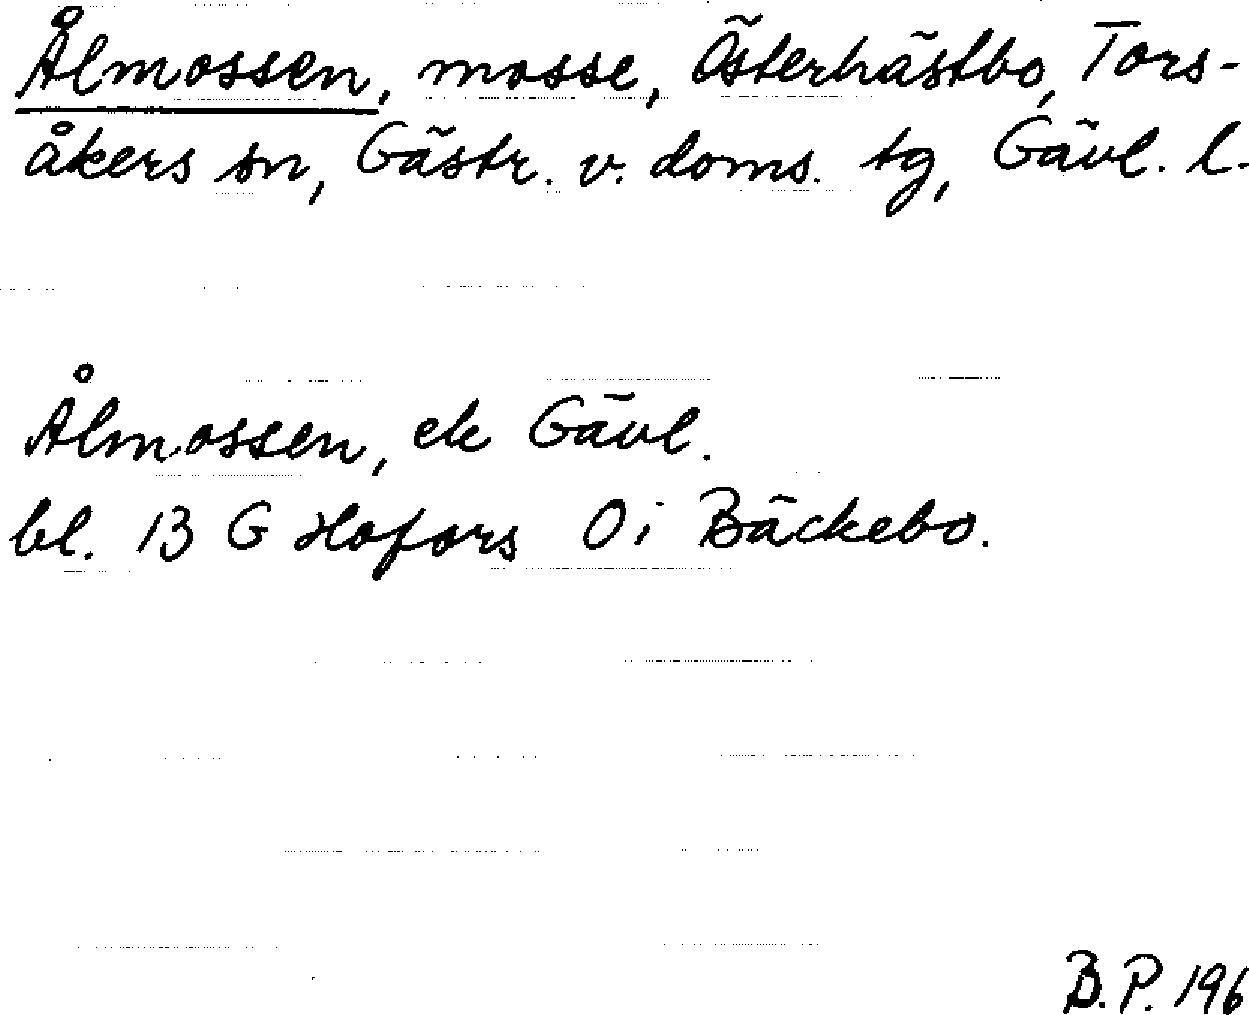 Ålmossen, mosse, Österhästbo, Tors-
åkers sn, Gästr. v. doms. tg, Gävl. l.
Ålmossen, ek Gävl.
bl. 13 G Hofors 0 i Bäckebo.
B.P. 196